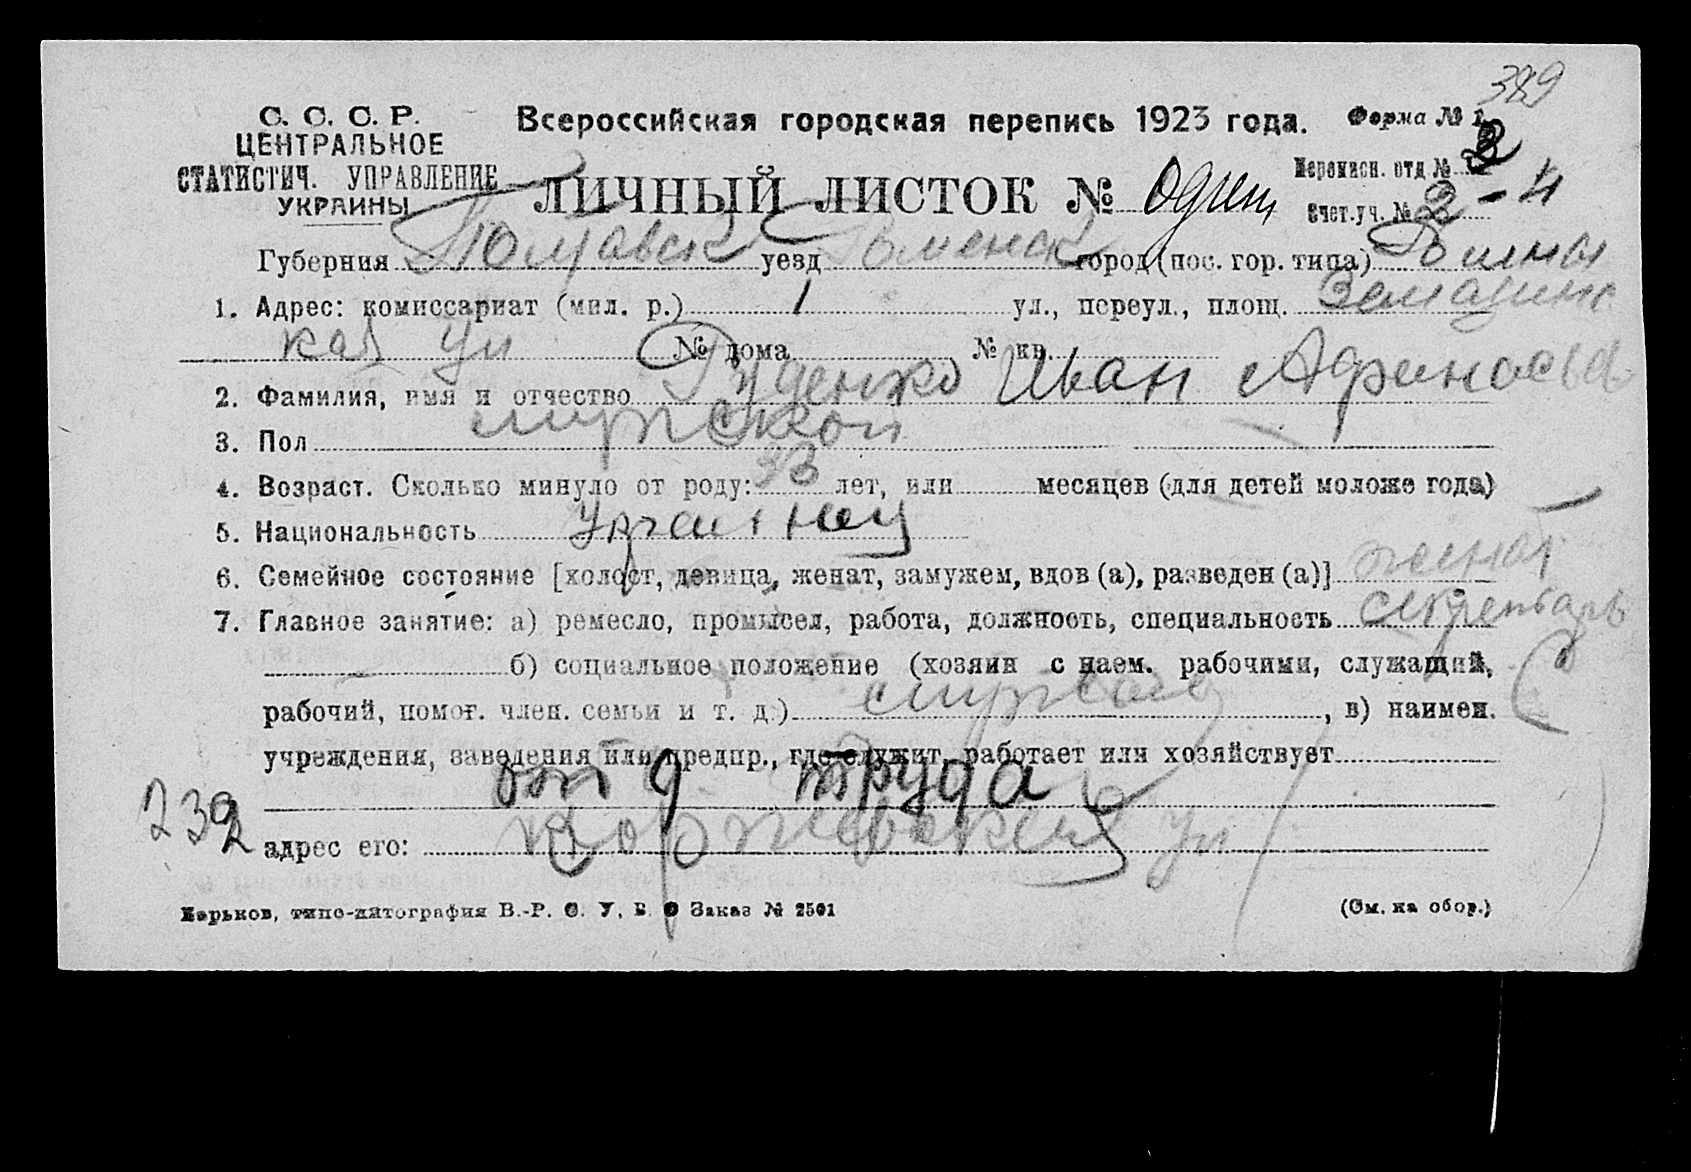 389
С. С. С. Р.
ЦЕНТРАЛЬНОЕ
СТАТИСТИЧ. УПРАВЛЕНИЕ
УКРАИНЫ
Всероссийская городская перепись 1923 года.
Форма № 1
ЛИЧНЫЙ ЛИСТОК № Один
Переписн. отд № 3
Счет.уч. № 3 - 4
Губерния Полтавск уезд Роменск город (пос. гор. типа) Ромны
1. Адрес: комиссариат (мил. р.) 1 ул., переул., площ.
кая ул № дома № кв.
2. Фамилия, имя и отчество Руденко Иван Афанасьев
3. Пол мужской
4. Возраст. Сколько минуло от роду: 33 лет, или месяцев (для детей моложе года)
5. Национальность Украинец
6. Семейное состояние [холост, девица, женат, замужем, вдов (а), разведен (а)] женат
7. Главное занятие: а) ремесло, промысел, работа, должность, специальность секретарь
б) социальное положение (хозяин с наем. рабочими, служащий,
рабочий, помог. член. семьи и т. д.) служащ, в) наимен.
учреждения, заведения или предпр., где служит, работает или хозяйствует
отд труда
232
адрес его: ул
Харьков, типо-литография В.-Р. С. У. В. О Заказ № 2501
(См. на обор.)